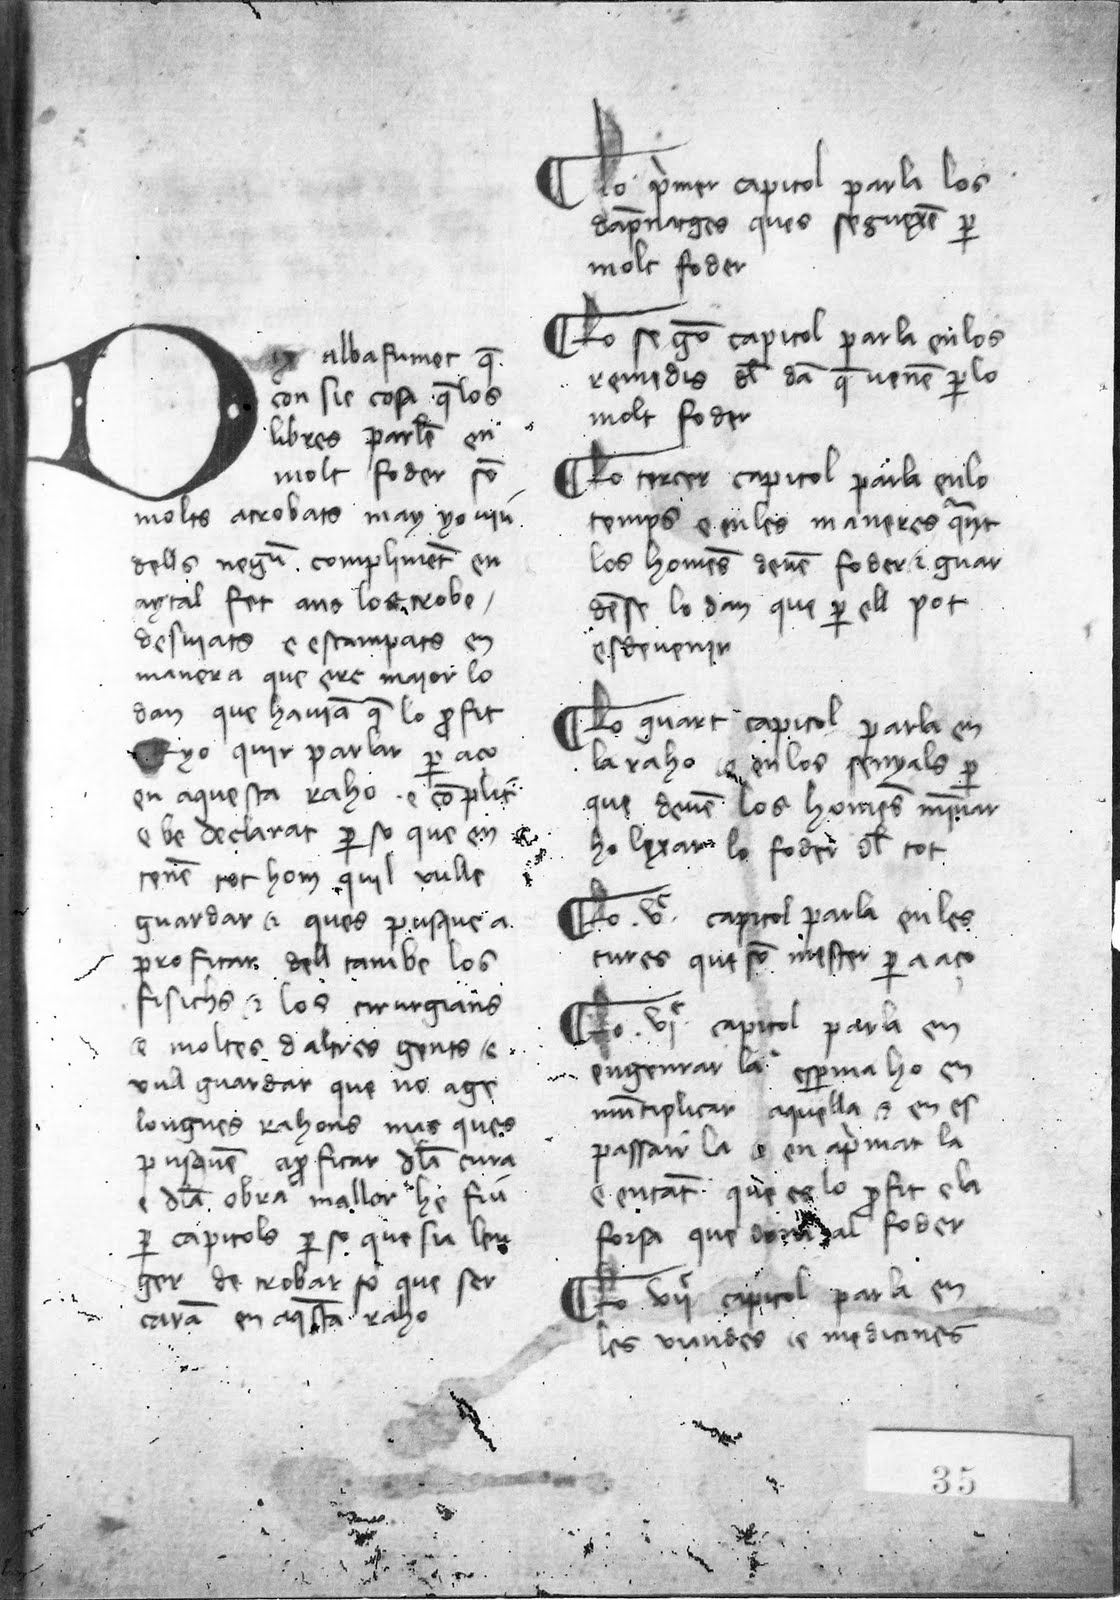 Diu albafumet q̄
con sie cosa q̄ los
libres parlē en
molt foder sō
molts atrobats may yo viu
dells negū complimēt en
aytal fet ans los trobe
desviats e escampats en
manera que ere maior lo
dan que haviā q̄ lo ꝓfit
E yo quir parlar ꝑ aco
en aquesta raho e cōplit
e be declarat ꝑ so que en
tenē tot hom quil vulle
guardar e ques pusque a
profitar dell tambe los
fisichs e los cirurgians
e moltes daltres gents e
vull guardar que no age
longues rahons mas ques
pusquē aꝓfitar dl̄a cura
e dl̄a obra mallor he fiu
ꝑ capitols ꝑ so que sia leu
ger de trobar so que ser
caran en aq̄sta raho
Lo pͥmer capitol parla los
dāpnatges ques seguexē ꝑ
molt foder
Lo segō capitol parla en los
remedis dl̄ dā q̄ venē ꝑ lo
molt foder
Lo tercer capitol parla en lo
temps e en les maneres quāt
los homēs devē foder e guar
dēse lo dan que ꝑ ell pot
esdevenir
Lo quart capitol parla en
la raho e en los senyals ꝑ
que devē los homēs minvar
ho lexar lo foder dl̄ tot
Lo .v. capitol parla en les
cures que sō mester ꝑ a aço
Lo .vi. capitol parla en
engenrar la esperma ho en
multiplicar aquella e en es
passair la e en apͥmar la
e en tāt que es lo ꝓfit e la
forsa que dona al foder
Lo vii capitol parla en
les viandes e medicines
35